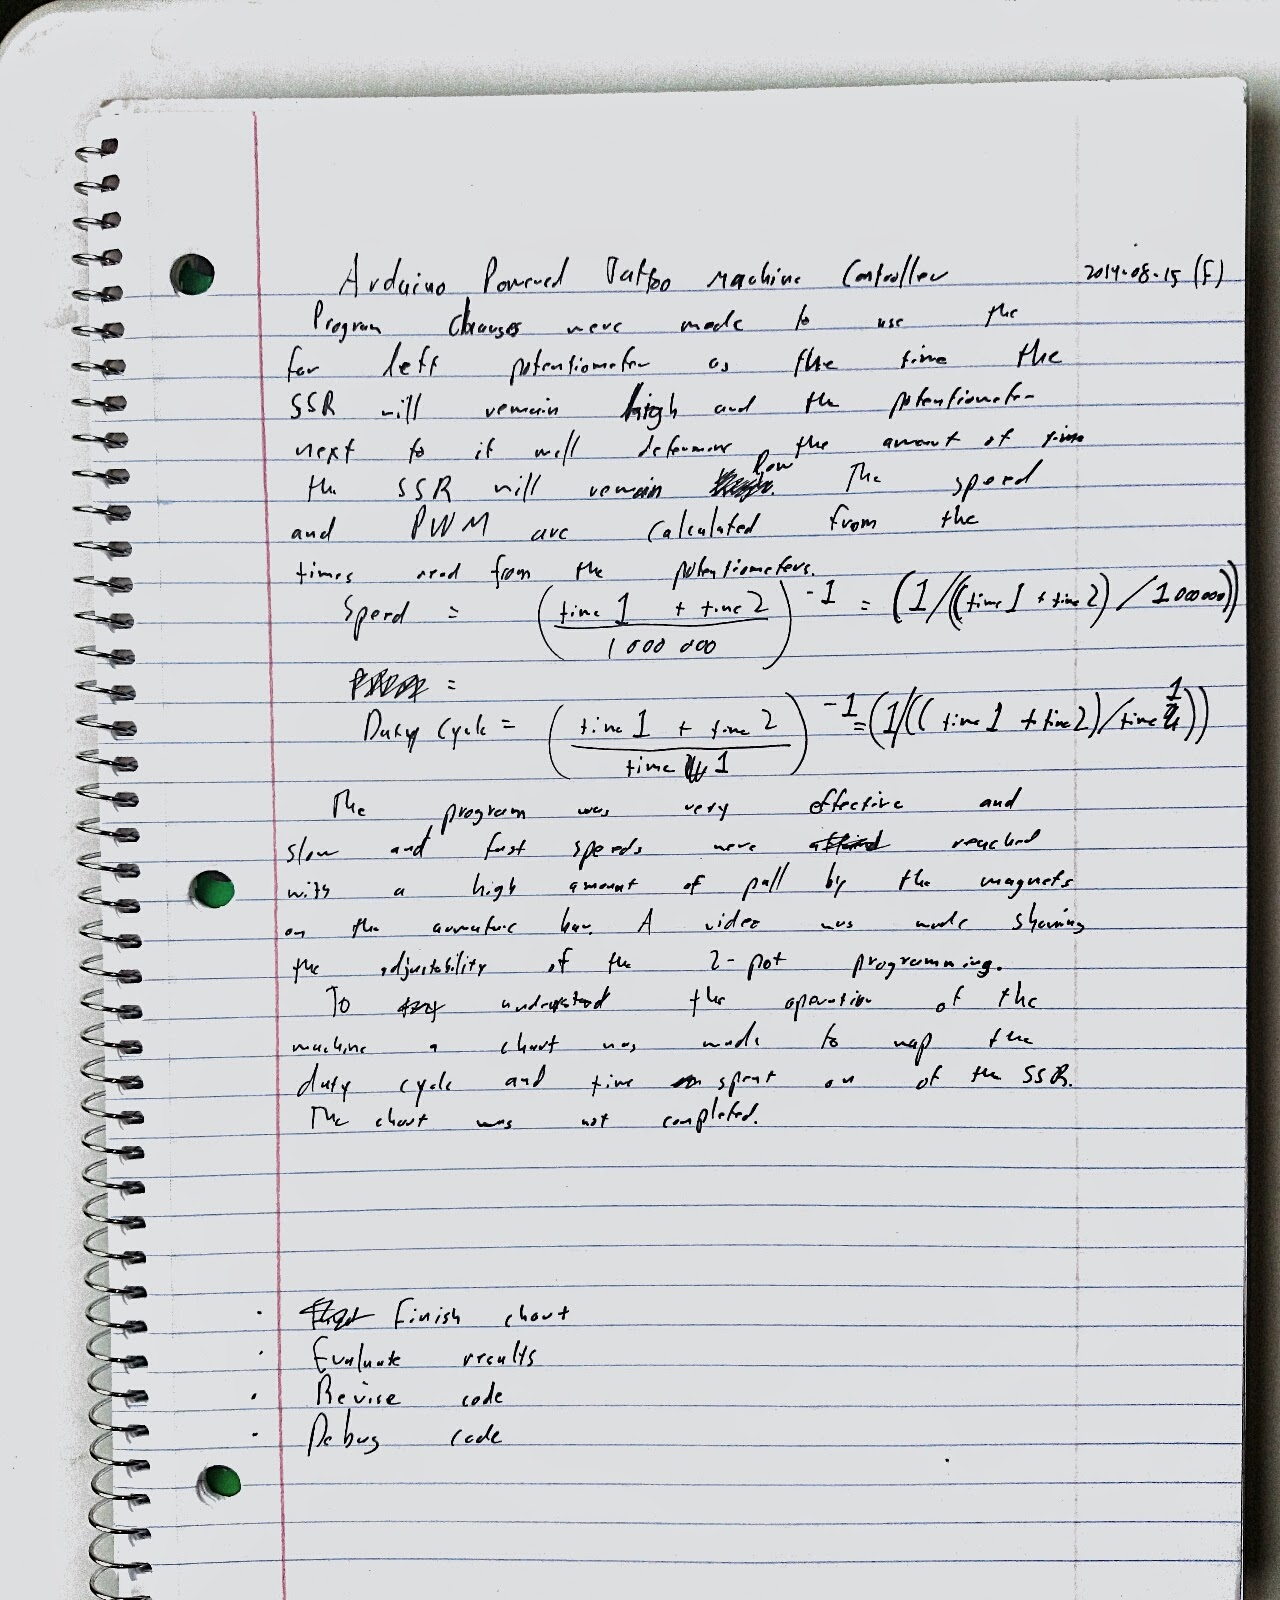 Arduino Powered Tattoo Machine Controller 2014-08-15 (F)
Program changes were made to use the
far left potentiometer as the time the
SSR will remain high and the potentiometer
next to it will determine the amount of time
the SSR will remain low. The speed
and PWM are calculated from the
times read from the potentiometers.
Speed = ((time 1 + time 2) / 1000 000)^-1 = (1/((time 1 + time 2) / 1 000000))
=
Duty Cycle = ((time 1 + time 2) / time 1)^-1 = (1/((time 1 + time 2)/time 1))
The program was very effective and
slow and fast speeds were reached
with a high amount of pull by the magnets
on the armature bar. A video was made showing
the adjustability of the 2-pot programming.
To understand the operation of the
machine a chart was made to map the
duty cycle and time spent on of the SSR.
The chart was not completed.
· Finish chart
· Evaluate results
· Revise code
· Debug code